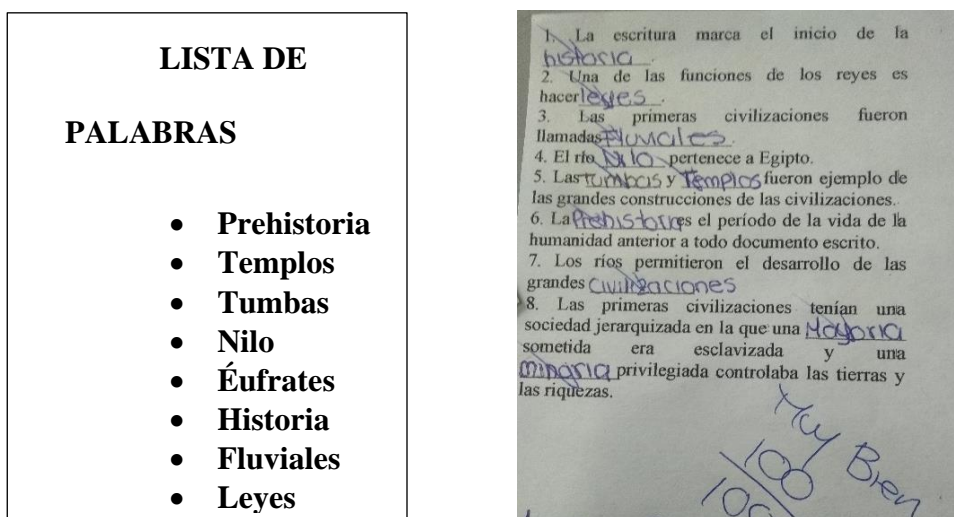 LISTA DE
PALABRAS
• Prehistoria
• Templos
• Tumbas
• Nilo
• Éufrates
• Historia
• Fluviales
• Leyes
1. La escritura marca el inicio de la
historia.
2. Una de las funciones de los reyes es
hacer leyes.
3. Las primeras civilizaciones fueron
llamadas Fluviales.
4. El río Nilo pertenece a Egipto.
5. Las Tumbas y Templos fueron ejemplo de
las grandes construcciones de las civilizaciones.
6. La Prehistoria es el período de la vida de la
humanidad anterior a todo documento escrito.
7. Los ríos permitieron el desarrollo de las
grandes Civilizaciones
8. Las primeras civilizaciones tenían una
sociedad jerarquizada en la que una Mayoria
sometida era esclavizada y una
minoria privilegiada controlaba las tierras y
las riquezas.
Muy Bien
100
100